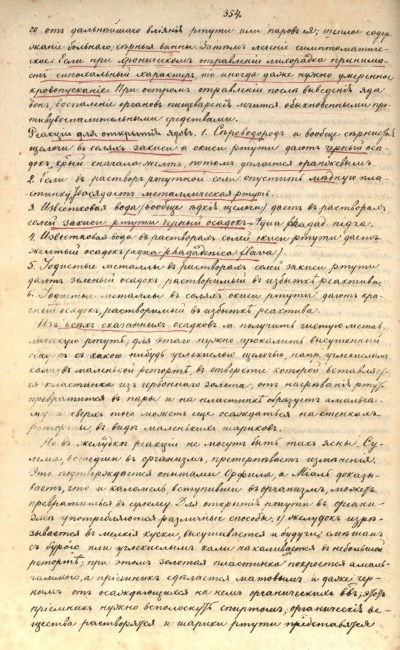 354.
го отъ дальнѣйшаго вліянія ртути или паровъ ея; теплое содер-
жаніе больнаго, сѣрныя ванны. Затѣмъ леченіе симптоматиче-
ское. Если при хроническомъ отравленіи лихорадка принима-
етъ синохальный характеръ, то иногда даже нужно умѣренное
кровопусканіе. При остромъ отравленіи послѣ выведенія яда
воспаленіе органовъ пищеваренія лечится обыкновенными про-
тивувоспалительными средствами.
Реакціи для открытія ядовъ. 1. Сѣроводородъ и вообще сѣрнистыя
щелочи въ солях закиси и окиси ртути даютъ черный оса-
докъ, сначала желт, потомъ дѣлается оранжевымъ.
2. Если въ растворъ ртутной соли опустить мѣдную пла-
стинку, осядетъ металлическая ртуть.
3. Известковая вода (вообще ѣдкія щелочи) даетъ въ растворахъ
солей закиси ртути черный осадокъ - Aqua phaged. nigra.
4. Известковая вода въ растворахъ солей окиси ртути даетъ
желтый осадокъ (aqua phagedenica flava).
5. Іодистые металлы въ растворахъ солей закиси ртути
даютъ зелёный осадокъ растворимый въ избыткѣ реактива.
6. Іодистые металлы въ соляхъ окиси ртути даютъ кра-
сный осадокъ, растворимый въ избыткѣ реактива.
Изъ всѣхъ сказанныхъ осадковъ м. получить чистую метал-
лическую ртуть; для этого нужно прокалить высушенный
осадокъ съ какою нибудь углекислою щелочью, напр. углекислым
кали въ маленькой ретортѣ, въ отверстіе которой вставляет-
ся пластинка изъ червоннаго золота; отъ нагрѣванія ртуть
превратится въ пары и на пластинкѣ образуетъ амальга-
му и сверхъ того можетъ еще осаждаться на стенкахъ
реторты, въ видѣ маленькихъ шариковъ.
Но въ желудкѣ реакціи не могутъ быть такъ ясны. Су-
лема, вошедши въ организмъ, претерпѣваетъ измѣненія.
Это подтверждается опытами Орфила, а Міалъ доказы-
ваетъ, что и каломель вступивши въ организмъ, можетъ
превратиться въ сулему. Для открытія ртути въ органи-
змѣ употребляются различные способы, 1) желудокъ изрѣ-
зывается въ мелкіе куски, высушивается и будучи смѣшанъ
съ бурою или углекислымъ кали накаливается въ небольшой
ретортѣ; при этомъ золотая пластинка покроется амаль-
гамою, а пріемникъ сдѣлается матовымъ и даже чер-
нымъ отъ осаждающихся на немъ органическихъ вѣ.
пріемникъ нужно всполоснуть спиртомъ, органическія ве-
щества растворятся и шарики ртути представятся